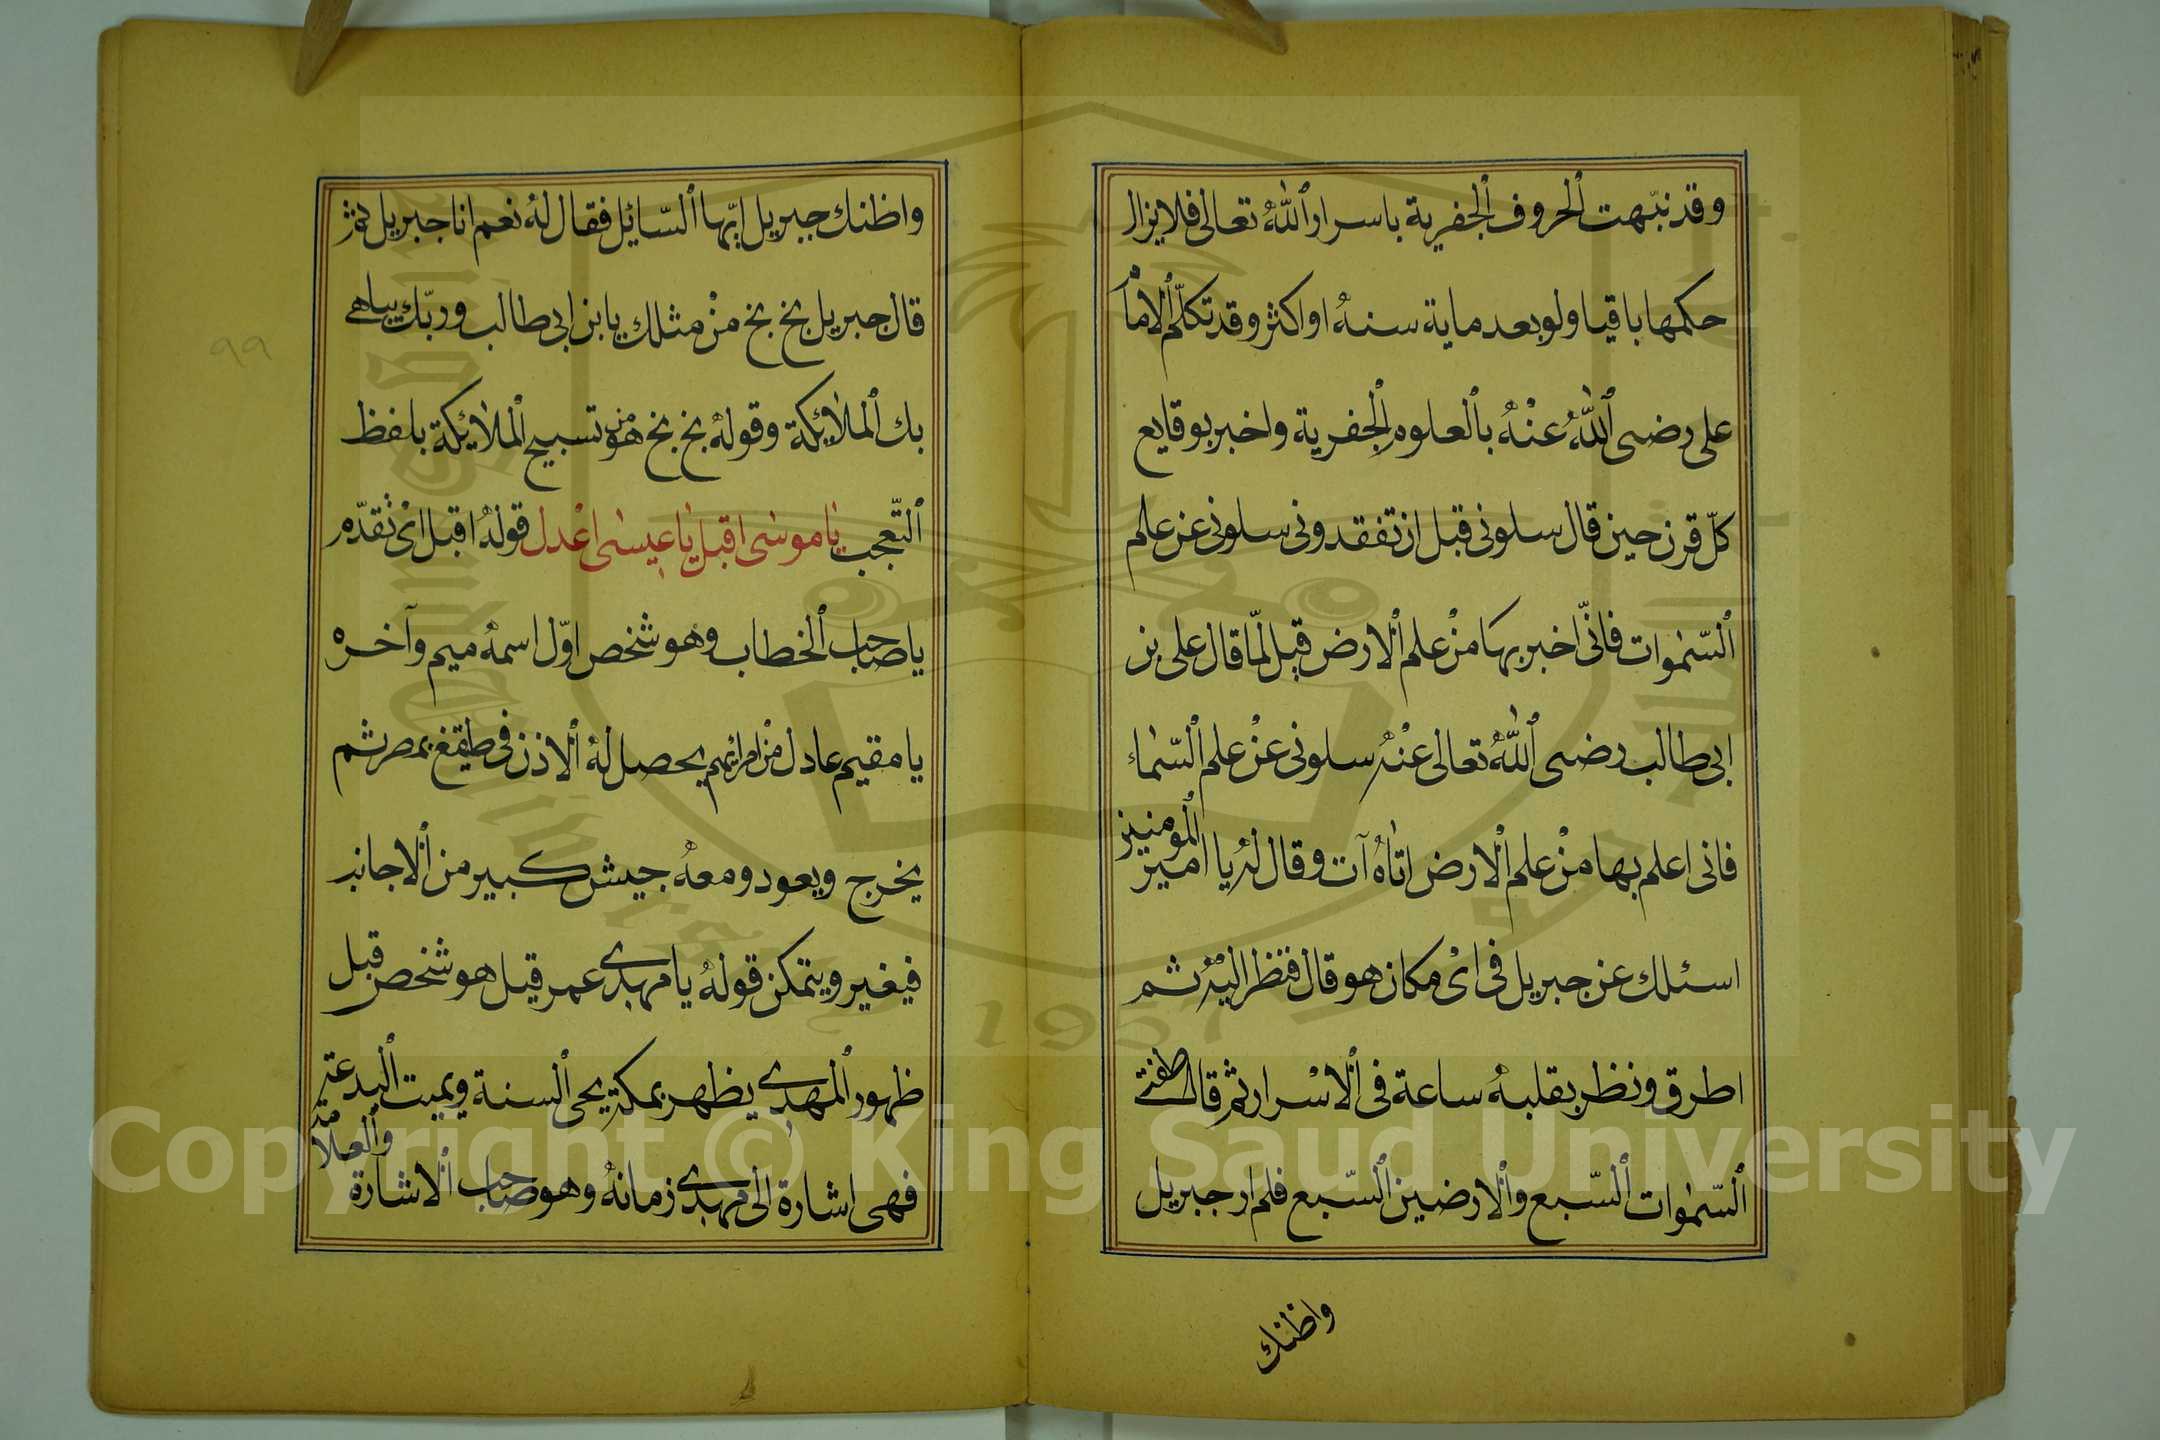 وقد نبّهت الحروف الجفرية باسرار الله تعالى فلا يزال
حكمها باقيا ولو بعد ماية سنة او اكثر وقد تكلّم الامام
على رضى الله عنه بالعلوم الجفرية واخبر بوقايع
كلّ قرن حين قال سلونى قبل ان تفقدونى سلونى عن علم
السّموات فانّى اخبر بها من علم الارض قبل لمّا قال على بن
ابى طالب رضى الله تعالى عنه سلونى عن علم السّماء
فانى اعلم بها من علم الارض اتاه آت وقال له يا امير المومنين
اسئلك عن جبريل فى اى مكان هو قال فنظر اليه ثم
اطرق ونظر بقلبه ساعة فى الاسرار ثم قال طفت
السّموات السّبع والارضين السّبع فلم ار جبريل
واظنك
واظنك جبريل ايّها السّايل فقال له نعم انا جبريل ثم
قال جبريل بخ بخ من مثلك يا بن ابى طالب وربّك يباهى
بك الملائكة وقوله بخ بخ هو من تسبيح الملائكة بلفظ
التّعجب يا موسى اقبل يا عيسى اعدل قوله اقبل اى تقدّم
يا صاحب الخطاب وهو شخص اوّل اسمه ميم وآخره
يا مقيم عادل من امرائهم يحصل له الاذن فى بمصر ثم
يخرج ويعود ومعه جيش كبير من الاجانب
فيغير ويتمكن قوله يا مهدى عمر قيل هو شخص قبل
ظهور المهدى يظهر بمكة يحى السنة ويميت البدعة والعلامة
فهى اشارة الى مهدى زمانه وهو صاحب الاشارة
٩٩
Copyright © King Saud University
1957